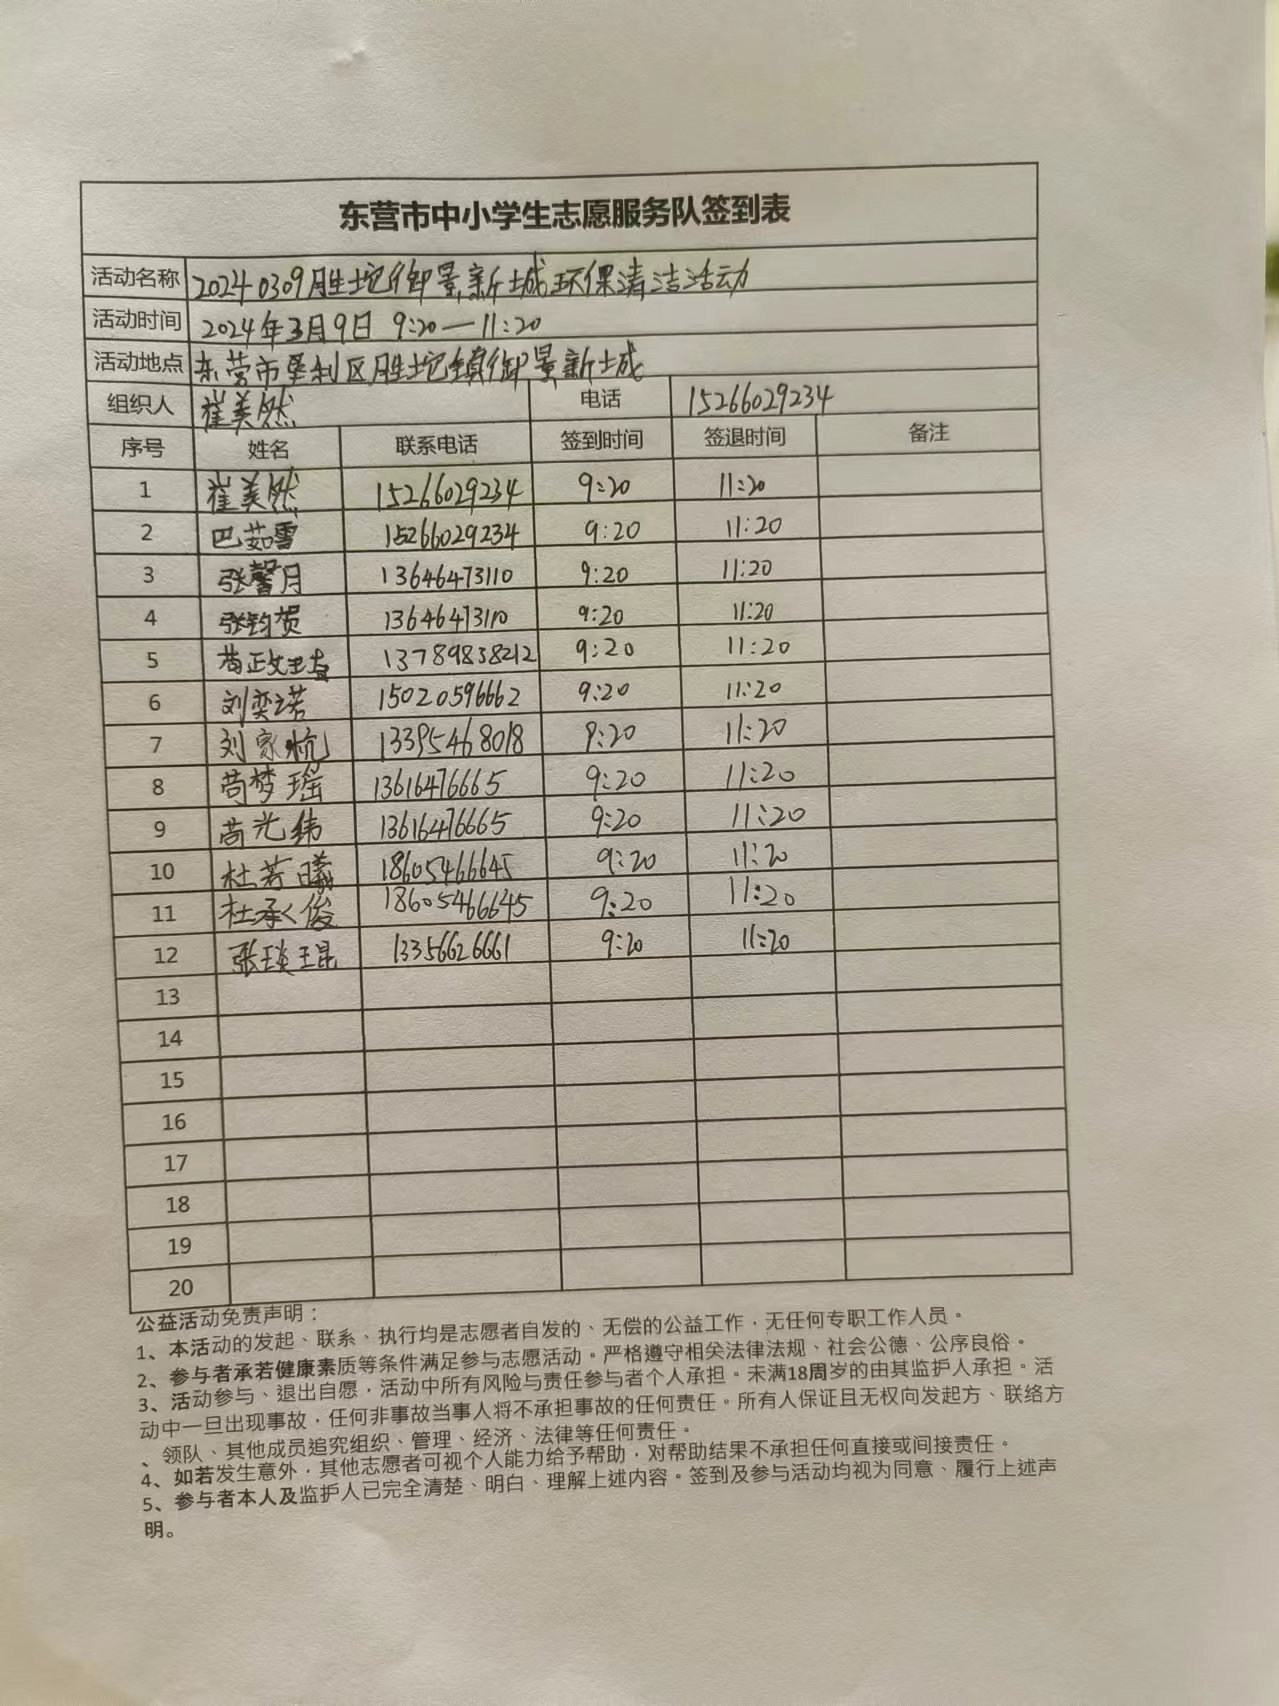 东营市中小学生志愿服务队签到表
活动名称 20240309胜坨御景新城环保清洁活动
活动时间 2024年3月9日 9:20—11:20
活动地点 东营市垦利区胜坨镇御景新城
组织人 崔美然 电话 15266029234
序号 姓名 联系电话 签到时间 签退时间 备注
1 崔美然 15266029234 9:20 11:20
2 巴茹雪 15266029234 9:20 11:20
3 张馨月 13646473110 9:20 11:20
4 张钧贺 13646473110 9:20 11:20
5 13789838212 9:20 11:20
6 刘奕诺 15020596662 9:20 11:20
7 刘家杭 13395468018 9:20 11:20
8 苟梦瑶 13616476665 9:20 11:20
9 苟光纬 13616476665 9:20 11:20
10 杜若曦 18605466645 9:20 11:20
11 杜承俊 18605466645 9:20 11:20
12 张琰琨 13356626661 9:20 11:20
13
14
15
16
17
18
19
20
公益活动免责声明：
1、本活动的发起、联系、执行均是志愿者自发的、无偿的公益工作，无任何专职工作人员。
2、参与者承若健康素质等条件满足参与志愿活动。严格遵守相关法律法规、社会公德、公序良俗。
3、活动参与、退出自愿，活动中所有风险与责任参与者个人承担。未满18周岁的由其监护人承担。活
动中一旦出现事故，任何非事故当事人将不承担事故的任何责任。所有人保证且无权向发起方、联络方
、领队、其他成员追究组织、管理、经济、法律等任何责任。
4、如若发生意外，其他志愿者可视个人能力给予帮助，对帮助结果不承担任何直接或间接责任。
5、参与者本人及监护人已完全清楚、明白、理解上述内容。签到及参与活动均视为同意、履行上述声
明。